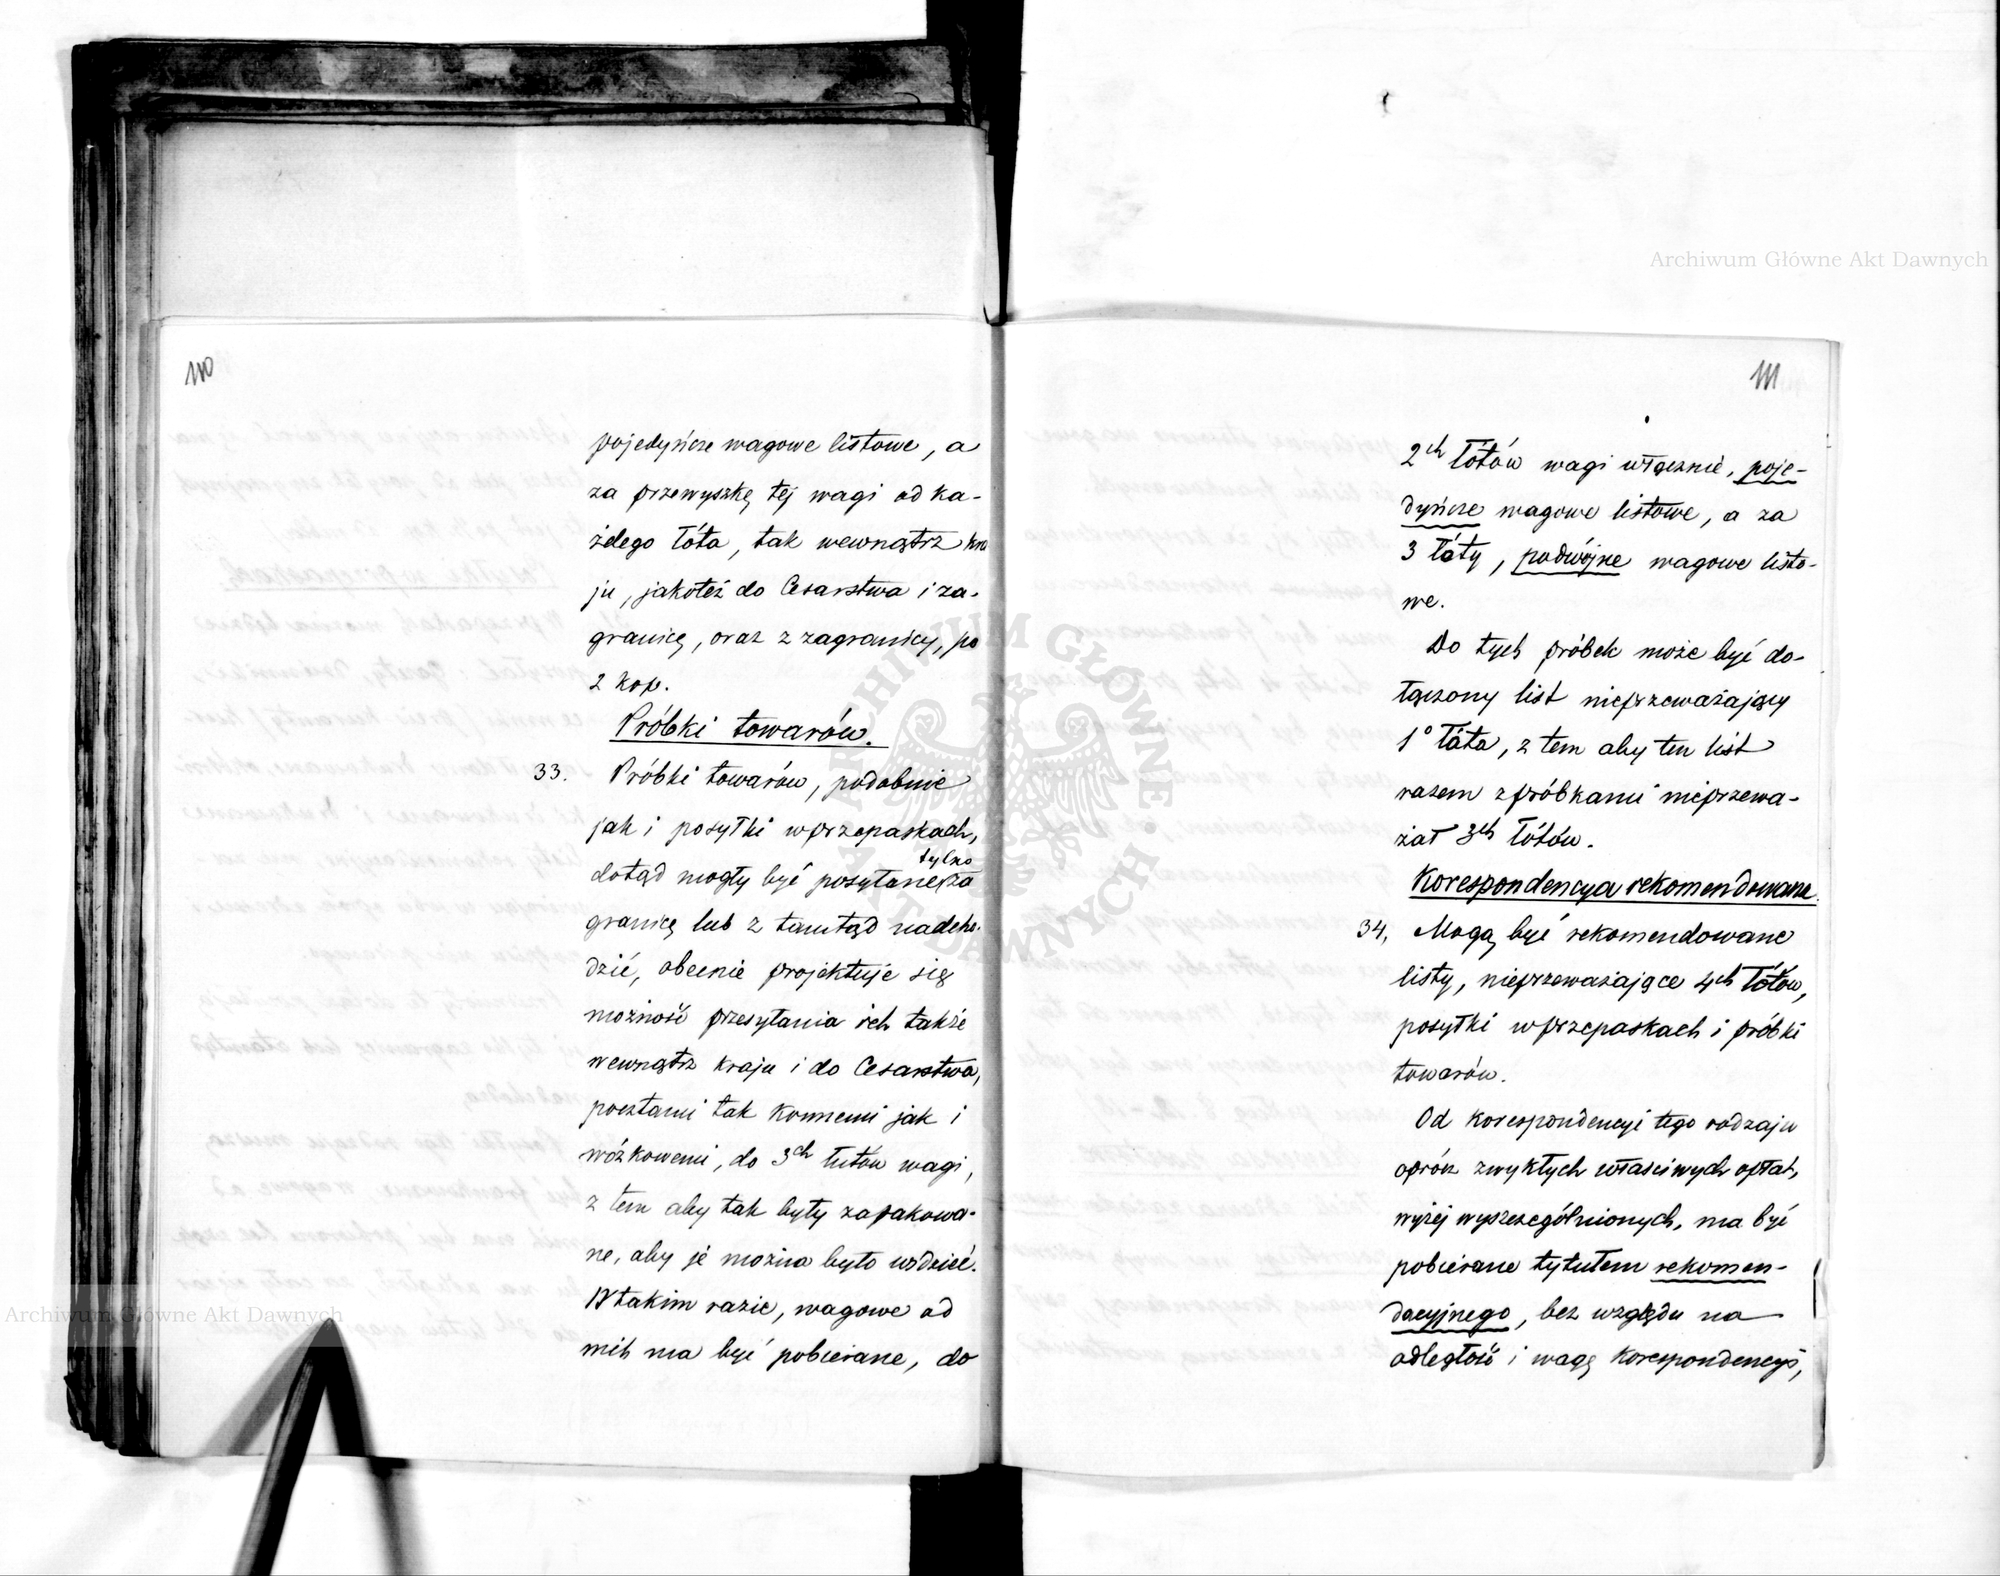 110
pojedyńcze wagowe listowe, a
za przewyszkę tej wagi od ka-
żdego łóta, tak wewnątrz kra
ju, jakoteż do Cesarstwa i za-
granicę, oraz z zagranicy, po
2 kop.
Próbki towarów.
33. Próbki towarów, podobnie
jak i posyłki w przepaskach,
tylko
dotąd mogły być posyłane za
granicę lub z tamtąd nadcho-
dzić, obecnie projektuje się
możność przesyłania ich także
wewnątrz kraju i do Cesarstwa,
pocztami tak konnemi jak i
wózkowemi, do 3ch łutów wagi,
z tem aby tak były zapakowa-
ne, aby je można było widzieć.
W takim razie, wagowe od
nich ma być pobierane, do
111
2ch łótów wagi włącznie, poje-
dyńcze wagowe listowe, a za
3 łóty, podwójne wagowe listo-
we.
Do tych próbek może być do-
łączony list nieprzeważający
1o łóta, z tem aby ten list
razem z próbkami nieprzewa-
żał 3ch łótów.
Korespondencya rekomendowana.
34, Mogą być rekomendowane
listy, nieprzeważające 4ch łótów,
posyłki w przepaskach i próbki
towarów.
Od korespondencyi tego rodzaju
oprócz zwykłych właściwych opłat,
wyżej wyszczególnionych, ma być
pobierane tytułem rekomen-
dacyjnego, bez względu na
odległość i wagę korespondencyi,
Archiwum Główne Akt Dawnych
Archiwum Główne Akt Dawnych
ARCHIWUM GŁÓWNE AKT DAWNYCH